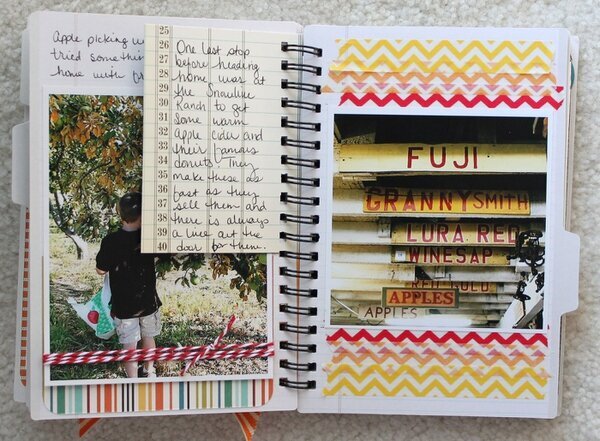 apple picking
tried
home with
25
26 One last stop
27 before heading
28 home was at
29 the Snowline
30 Ranch to get
31 some warm
32 apple cider and
33 their famous
34 donuts. They
35 make these as
36 fast as they
37 sell them and
38 there is always
39 a line out the
40 door for them.
FUJI
GRANNY SMITH
LURA RED
WINESAP
RED GOLD
APPLES
APPLES